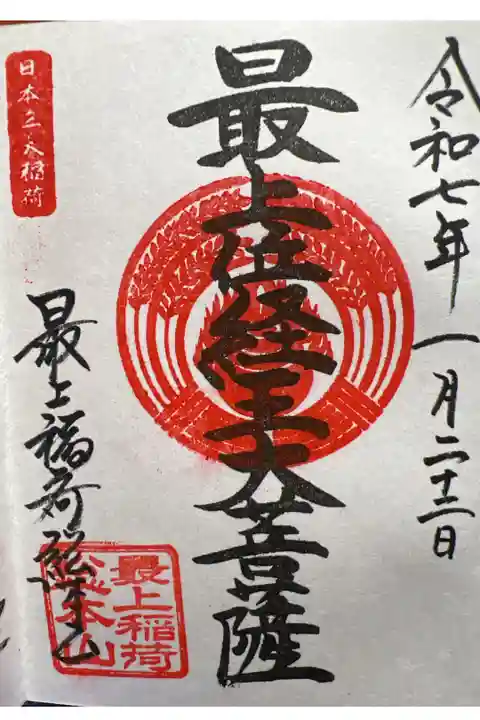 令和七年 一月二十二日
最上位経王大菩薩
日本三大稲荷
最上稲荷総本山
最上稲荷
総本山